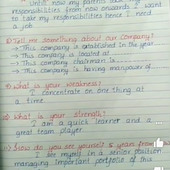 Until now my parents
responsibilities from now onwards I want
to take my responsibilities hence I need
a job
6) Tell me something about our company?
→ This company is established in the year...
→ This company is located at ...
→ This company chairman is ....
→ This company is having manpower of
7) what is your weakness?
I concentrate on one thing at
a time
what is your strength?
I am a quick learner and a
great team player
How do you see yourself 5 year from
I see myself in a senior position
managing important portfolio of this